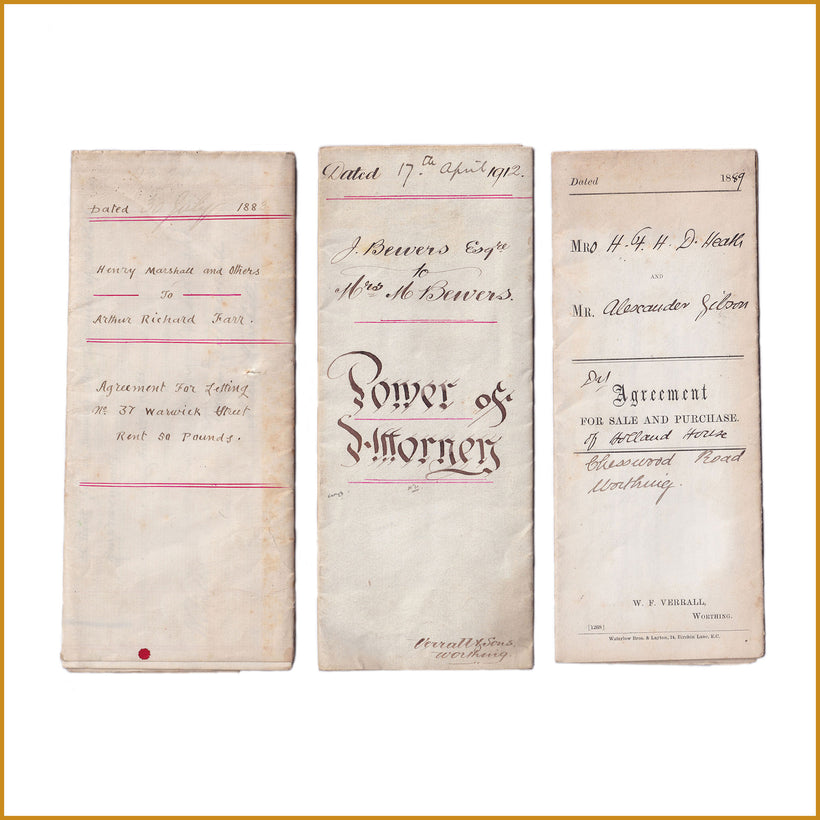 Dated July 188
Henry Marshall and Others
To
Arthur Richard Farr.
Agreement For Letting
No. 37 Warwick Street
Rent 50 Pounds.
Dated 17th April 1912.
J. Bewers Esqre
to
Mrs M Bewers.
Power of
Attorney
Verrall & Sons,
Worthing.
Dated 1889
MRO H. F. H. D. Heath
AND
MR. Alexander Gibson
Agreement
FOR SALE AND PURCHASE.
of Holland House
Chesswood Road
Worthing.
W. F. VERRALL,
WORTHING.
[1268]
Waterlow Bros. & Layton, 24, Birchin Lane, E.C.